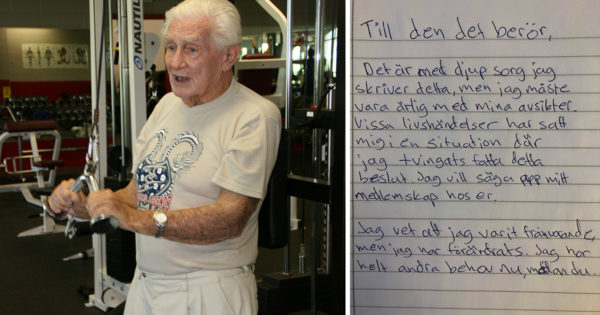 NAUTILUS
Till den det berör,
Det är med djup sorg jag
skriver detta, men jag måste
vara ärlig med mina avsikter.
Vissa livshändelser har satt
mig i en situation där
jag tvingats fatta detta
beslut. Jag vill säga upp mitt
medlemskap hos er.
Jag vet att jag varit frånvarande,
men jag har förändrats. Jag har
helt andra behov nu, mådan du.